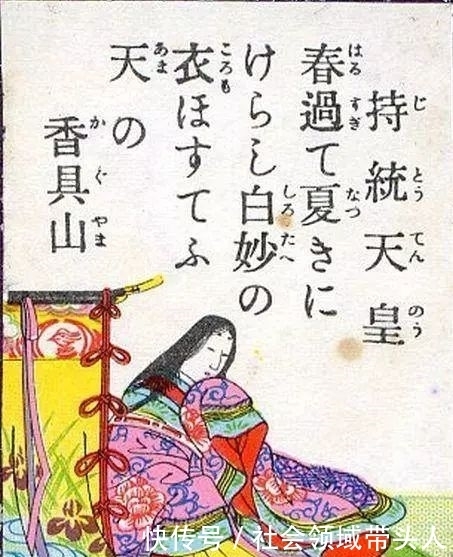 持統天皇
春過て夏きに
けらし白妙の
衣ほすてふ
天の
香具山
じとうてんのう
はるすぎなつ
しろたへ
ころも
あま
かぐやま
快传号/社会领域带头人